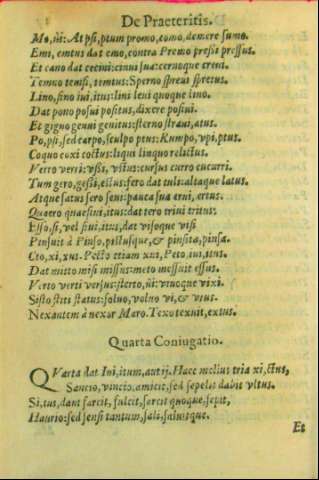 De Praeteritis.
Mo, ui: At psi, ptum promo, como, demere sumo.
Emi, emtus dat emo, contra Premo pressit pressus.
Et cano dat cecini: cinui sua: cernoque creui.
Temno temsi, temtus: Sperno spreui spretus.
Lino, sino iui, itus: lini leui quoque lino.
Dat pono posui positus, dixere posiui.
Et gigno genui genitus: sterno straui, atus.
Po, psi, sed carpo, sculpo ptus: Rumpo, upi, ptus.
Coquo coxi coctus: liqui linquo relictus.
Verro verri: vssi, vstus: cursus curro cucurri.
Tum gero, gessi, estus: fero dat tuli: altaque latus.
Atque satus sero seui: pauca sua erui, ertus.
Quaero quaesiui, itus: dat tero triui tritus.
Esso, si, vel siui, itus, dat visoque visi
Pinsuit à Pinso, pistusque, & pinsita, pinsa.
Cto, xi, xus. Pecto etiam xui, Peto, iui, itus.
Dat mitto misi missus: meto messuit essus.
Verto verti versus: sterto, ui: viuoque vixi.
Sisto stiti status: soluo, voluo vi, & utus.
Nexantem à nexor Maro. Texo texuit, extus.
Quarta Coniugatio.
QVarta dat Iui, itum, autij. Haec melius tria xi, ctus,
Sancio, vincio, amicit, sed sepelis dabit vltus.
Si, tus, dant farcit, fulcit, sarcit quoque, sepit,
Haurio: sed sensi tantum, salis, saluitque.
Et